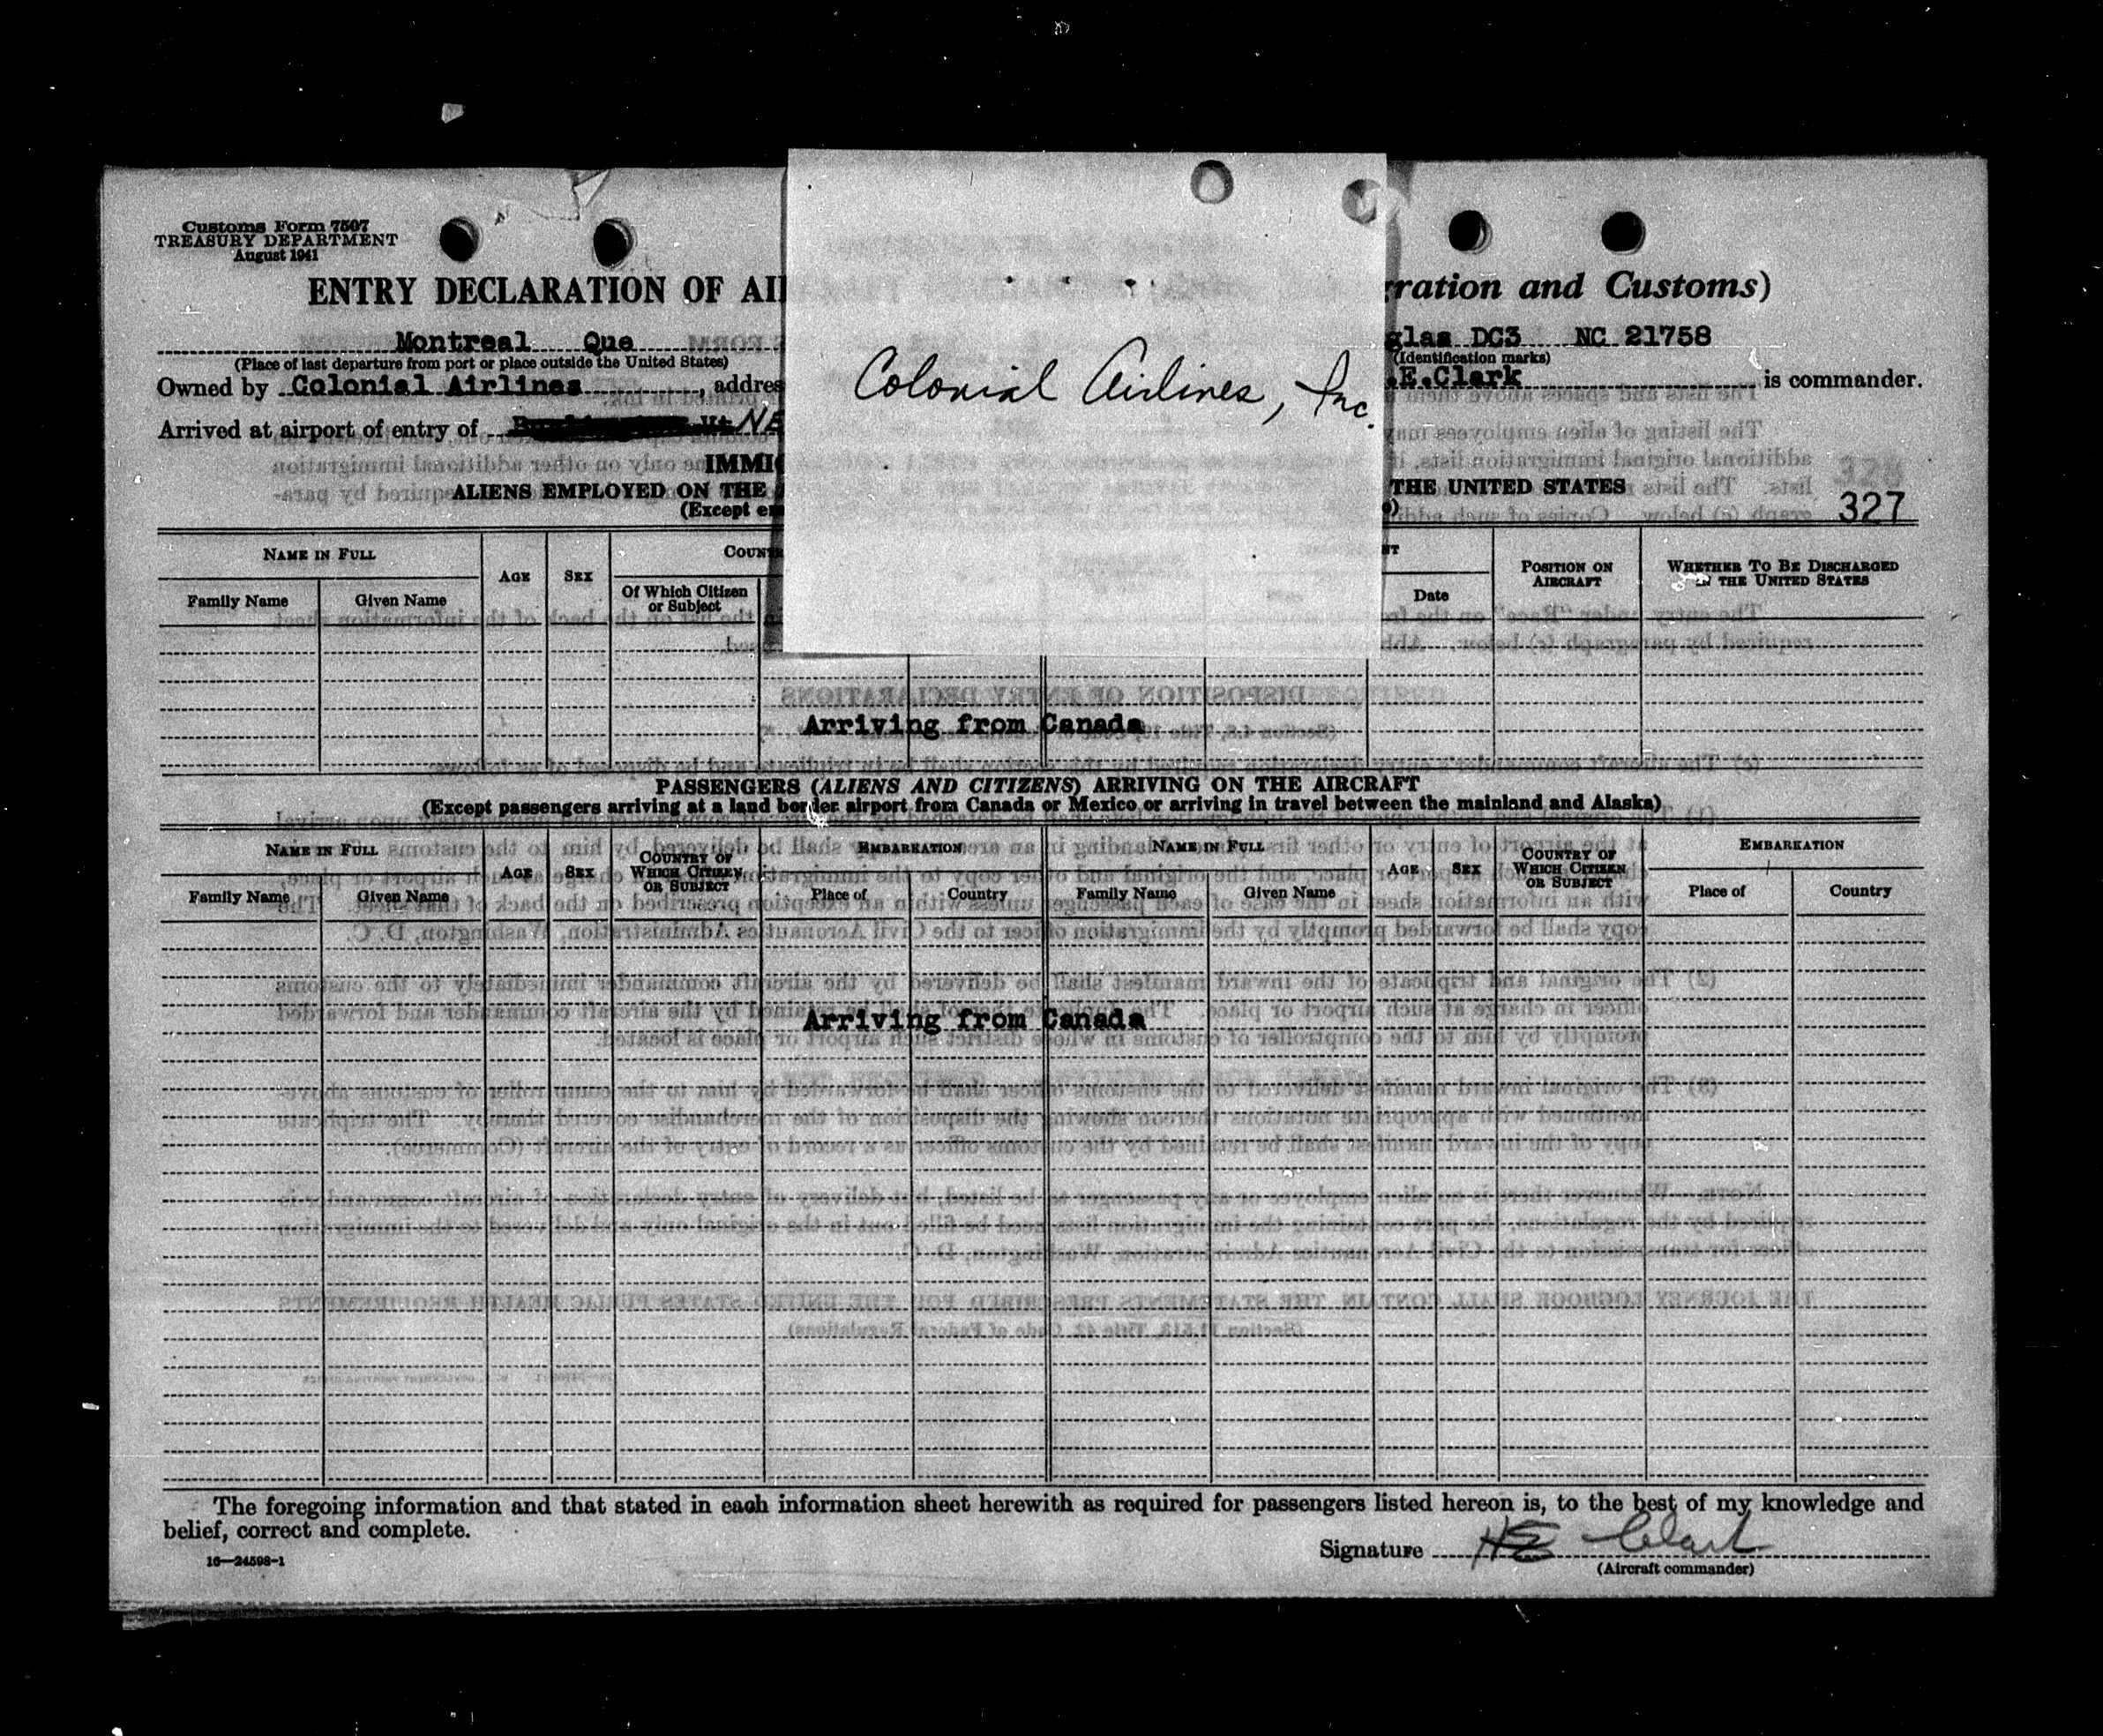 Customs Form 7507
TREASURY DEPARTMENT
August 1941
ENTRY DECLARATION OF AI
rration and Customs)
Montreal Que
glas DC3 NC 21758
(Place of last departure from port or place outside the United States)
(Identification marks)
Owned by Colonial Airlines, addres
.E.Clark is commander.
Colonial Airlines, Inc.
Arrived at airport of entry of Vt NE
IMMIG
ALIENS EMPLOYED ON THE
THE UNITED STATES
328
(Except em
327
NAME IN FULL
AGE
SEX
COUNT
NT
POSITION ON AIRCRAFT
WHETHER TO BE DISCHARGED IN THE UNITED STATES
Family Name
Given Name
Of Which Citizen or Subject
Date
Arriving from Canada
PASSENGERS (ALIENS AND CITIZENS) ARRIVING ON THE AIRCRAFT
(Except passengers arriving at a land border airport from Canada or Mexico or arriving in travel between the mainland and Alaska)
NAME IN FULL
AGE
SEX
COUNTRY OF WHICH CITIZEN OR SUBJECT
EMBARKATION
NAME IN FULL
AGE
SEX
COUNTRY OF WHICH CITIZEN OR SUBJECT
EMBARKATION
Family Name
Given Name
Place of
Country
Family Name
Given Name
Place of
Country
Arriving from Canada
The foregoing information and that stated in each information sheet herewith as required for passengers listed hereon is, to the best of my knowledge and
belief, correct and complete.
Signature HE Clark
16—24598-1
(Aircraft commander)